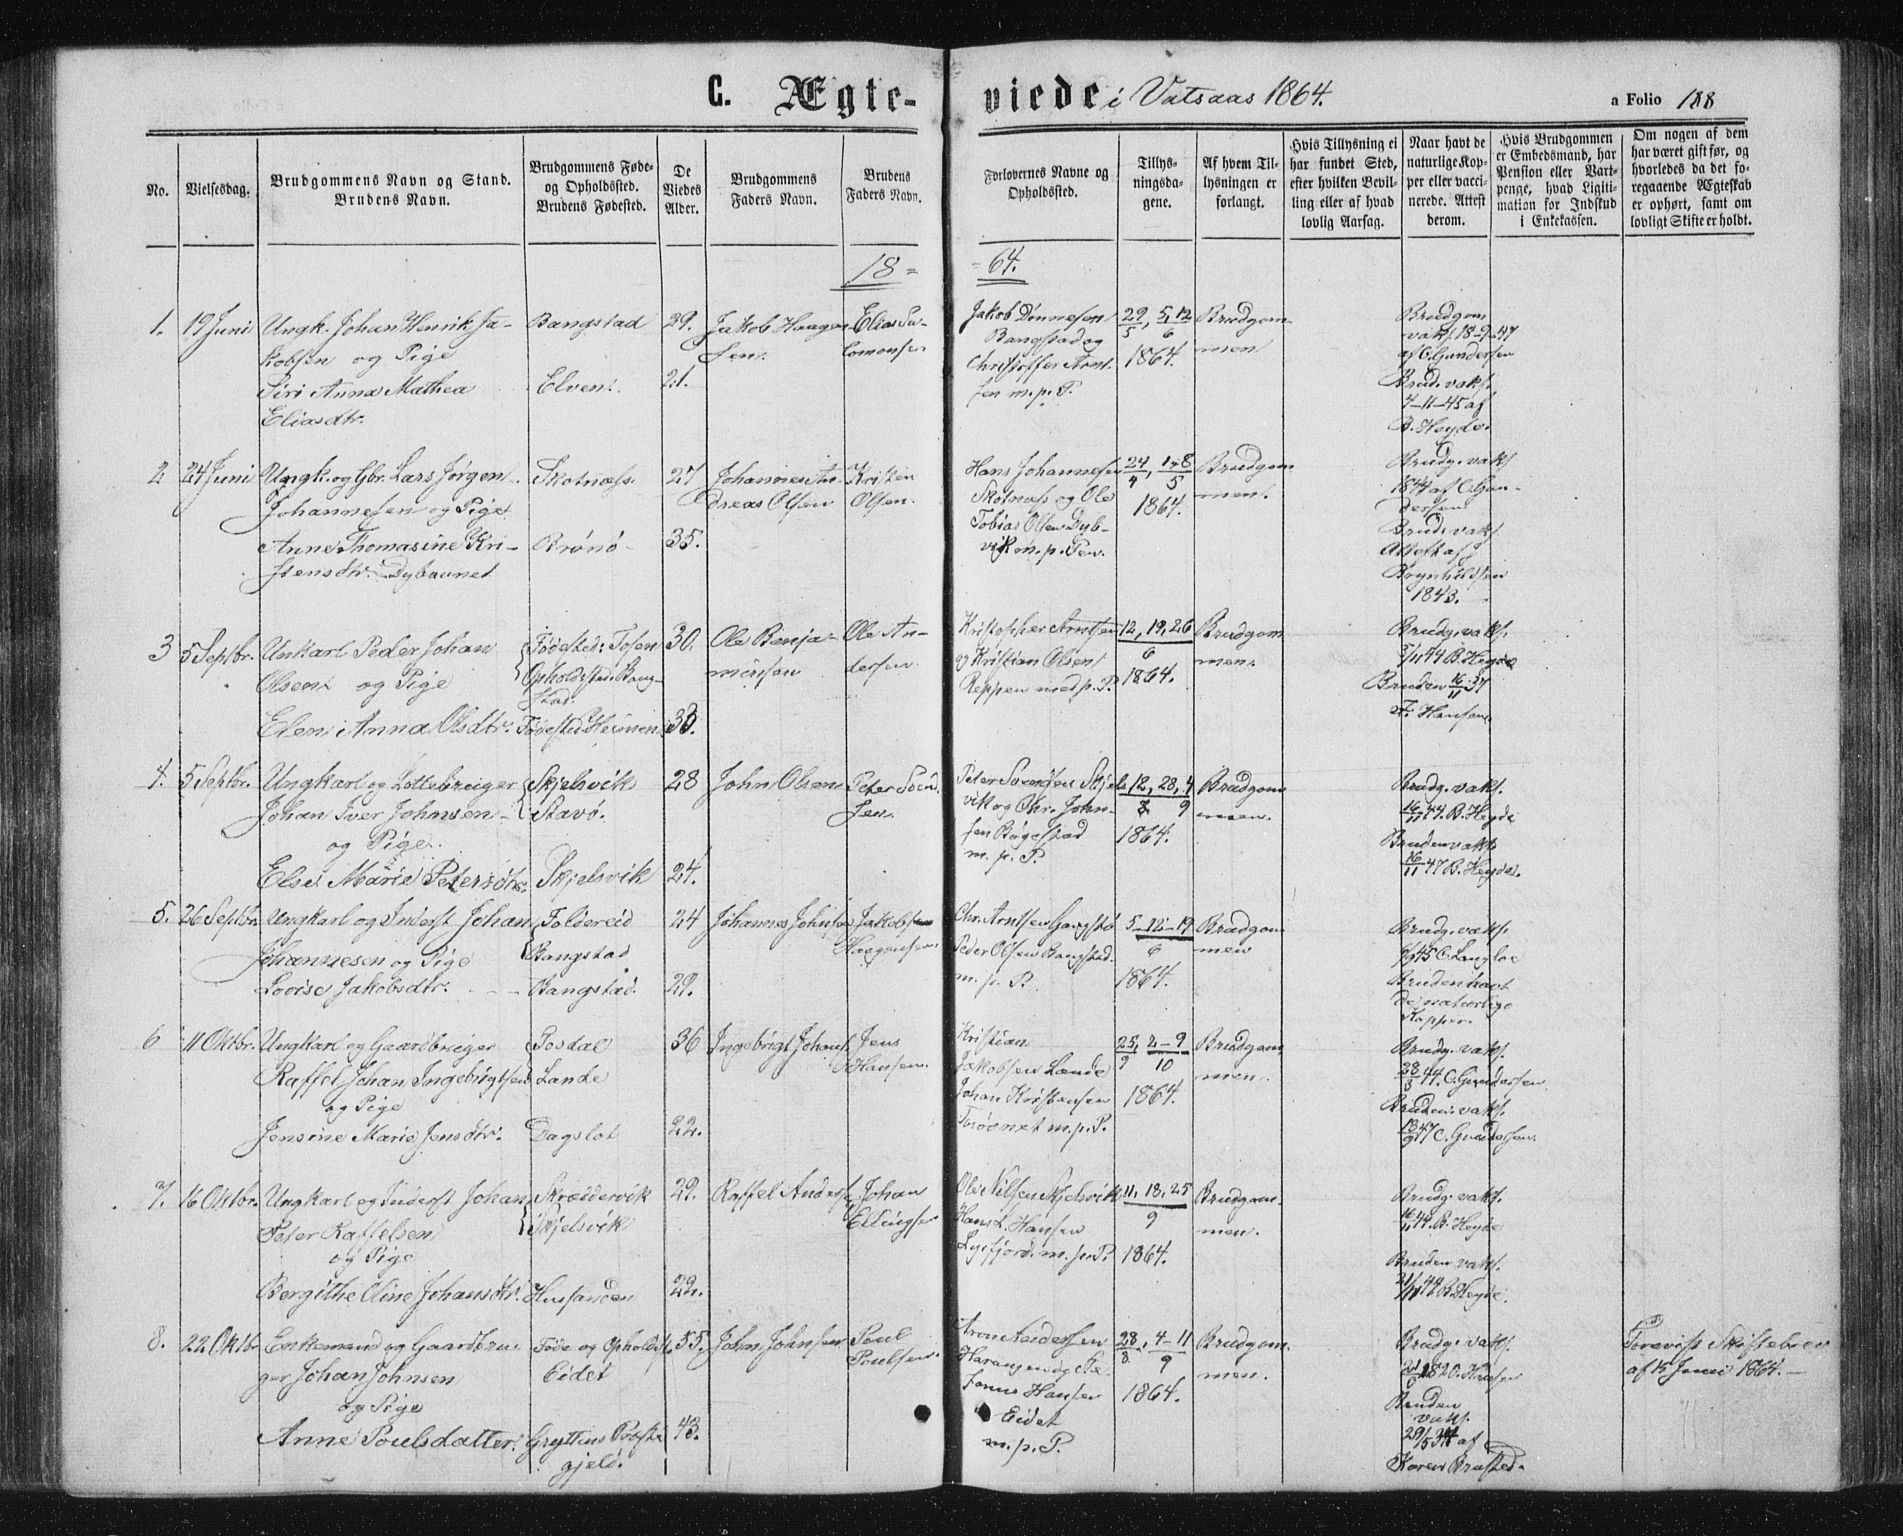 C. Ægte-
viede i Vatsaas 1864.
a Folio 188
No.
Vielsesdag.
Brudgommens Navn og Stand.
Brudens Navn.
Brudgommens Føde-
og Opholdsted.
Brudens Fødested.
De
Viedes
Alder.
Brudgommens
Faders Navn.
Brudens
Faders Navn.
Forlovernes Navne og
Opholdsted.
Tillys-
ningsda-
gene.
Af hvem Til-
lysningen er
forlangt.
Hvis Tillysning ei
har fundet Sted,
efter hvilken Bevil-
ling eller af hvad
lovlig Aarsag.
Naar havt de
naturlige Kop-
per eller vacci-
nerede. Attest
derom.
Hvis Brudgommen
er Embedsmand, har
Pension eller Vart-
penge, hvad Ligiti-
mation for Indskud
i Enkekassen.
Om nogen af dem
har været gift før, og
hvorledes da det fo-
regaaende Ægteskab
er ophørt, samt om
lovligt Skifte er holdt.
18 =
= 64.
1.
19 Juni
Ungk. Johan Henrik Ja-
kobsen og Pige
Siri Anna Mathea
Eliasdtr.
Bangstad
Elven.
29.
21.
Jakob Haagen
sen.
Elias Sa-
lomonsen
Jakob Dønnesen
Bangstad og
Christoffer Arnt-
sen m. p. P.
29, 5, 12
5 6
1864.
Brudgom
men
Brudgom
vak. 18-9-47
af C. Gundersen
Brud. vaks.
7-11-45 af
B. Heyde.
2
24 Juni
Ungk. og Gbr. Lars Jørgen
Johannesen og Pige
Anne Thomasine Kri-
stensdtr. Dybavnet
Skotnæss
Brønø
27
35.
Johannes An-
dreas Olsen
Kristen
Olsen.
Hans Johannesen
Skotnæss og Ole
Tobias Olsen Dyb-
vik m. p. Pen.
24, 1, 8
4 5
1864.
Brudgom
men.
Brudg. vaks
1844 af C. Gun-
dersen
Brud. vaks.
Attest af
Brynhildsen
1843.
3
5 Septbr.
Unkarl Peder Johan
Olsen og Pige
Elen Anna Olsdtr.
Fødested: Tosen
Opholdsted: Bang-
stad.
Fødested Heimen
30.
30.
Ole Benja-
minsen
Ole An-
dersen.
Kristopher Arntsen
og Kristian Olsen
Reppen med p. P.
12, 19, 26
6
1864.
Brudgom
men.
Brudg. vaks.
5/11 44 B. Heyde
Bruden 16/11 37
F. Hansen.
4.
5 Septbr.
Ungkarl og Lottebruger
Johan Iver Johnsen
og Pige.
Else Marie Petersdtr.
Skjelsvik
Stavø.
Skjelsvik
28
24.
John Olsen
Peter Svend
sen.
Peter Svendsen Skjel-
vik og Chr. John-
sen Bøgestad
m. p. P.
12, 28, 4
8 9
1864.
Brudgom
men.
Brudg. vaks.
16/11 44 B. Heyde
Bruden vaks
16/11 47 B. Heyde.
5.
26 Septbr.
Ungkarl og Inderst Johan
Johannesen og Pige
Lovise Jakobsdtr.
Foldereid
Bangstad
Bangstad.
24
29.
Johannes Johnsen
Jakob
Haagensen.
Chr. Arntsen Gangstø
Peder Olsen Bangstad.
m. p. P.
5-12-19
6
1864.
Brudgom
men
Brudg. vaks.
9/9 45 C. Langloe
Bruden havt
de naturlige
Kopper.
6
11 Oktbr.
Ungkarl og Gaardbruger
Raffel Johan Ingebrigtsen
og Pige
Jensine Marie Jensdtr.
Posdal
Lande
Dagslot
36
22.
Ingebrigt Johans.
Jens
Hansen.
Kristian
Jakobsen Lande
Johan Kristensen
Torøvnet m. p. P.
25, 2-9
9 10
1864.
Brudgom
men.
Brudg. vaks.
28/3 44. C. Gundersen
Bruden. vaks.
13/9 47 C. Gundersen.
7.
16 Oktbr.
Ungkarl og Inderst Johan
Peter Raffelsen
og Pige
Bergithe Oline Johansdtr.
Skreddervik
Skjelsvik
Husanden
29.
22.
Raffel Anders
Johan
Ellingsen
Ole Nilsen Skjelsvik
Hans L. Hansen
Lysfjord. m. p. P.
11, 18, 25
9
1864.
Brudgom
men.
Brudg. vaks.
16/11 44. B. Heyde
Bruden vaks.
21/11 44 B. Heyde.
8.
22 Oktb.
Enkemand og Gaardbru-
ger Johan Johnsen
og Pige
Anne Poulsdatter.
Føde og Opholdst.
Eidet
Gryttens Præste
gjeld.
55.
43.
John Johnsen
Poul
Poulsen.
Aron Andersen
Harangen og
Hansen
Eidet
m. p. P.
28, 4-11
8 9
1864.
Brudgom
men.
Brudg. vaks.
1820.
Bruden
vaks.
29/5 34 af
Karen Brusted.
Forevist Skiftebrev
af 15 Juni 1864.